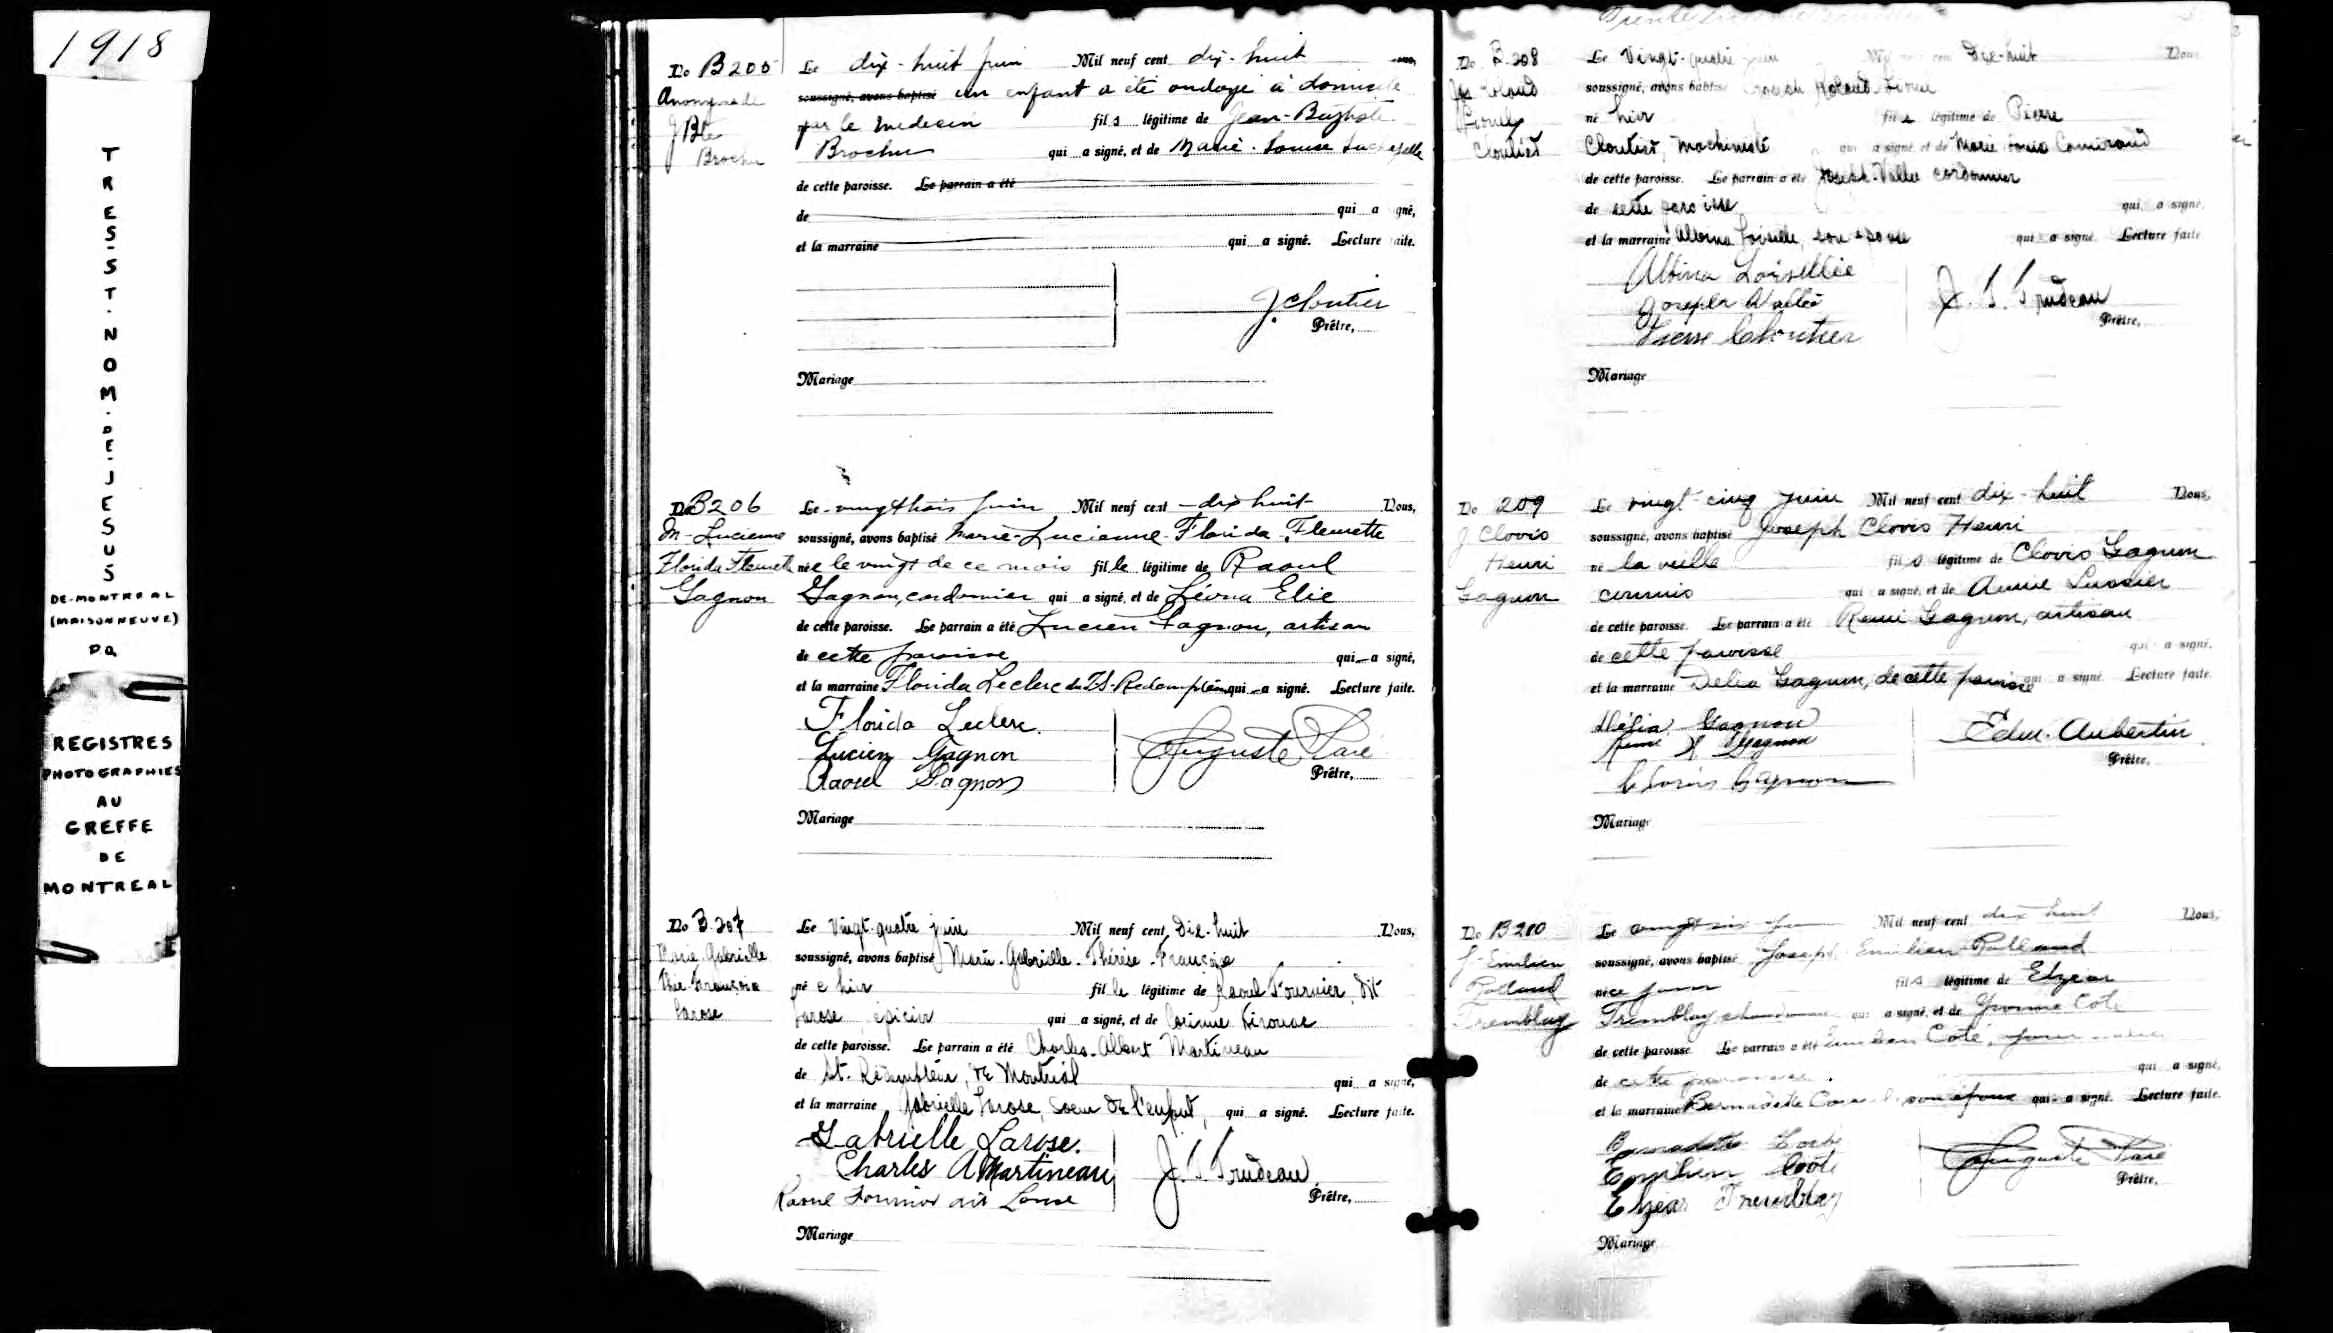 1918
TRES-ST-NOM-DE-JESUS
DE-MONTREAL
(MAISONNEUVE)
PQ
REGISTRES
PHOTOGRAPHIES
AU
GREFFE
DE
MONTREAL
No B205
Anonyme de
J Bte
Brochu
Le dix-huit juin Mil neuf cent dix-huit
soussigné, avons baptisé un enfant a été ondoyé à domicile
par le médecin fils légitime de Jean-Baptiste
Brochu qui a signé, et de Marie-Louise
de cette paroisse. Le parrain a été
de qui a gné,
et la marraine qui a signé. Lecture faite.
J. Cloutier
Prêtre,
Mariage
No B206
M-Lucienne
Florida Fleurette
Gagnon
Le vingt trois juin Mil neuf cent dix huit Nous,
soussigné, avons baptisé Marie-Lucienne-Florida-Fleurette
née le vingt de ce mois fille légitime de Raoul
Gagnon, cordonnier qui a signé, et de Léona Elie
de cette paroisse. Le parrain a été Lucien Gagnon, artisan
de cette paroisse qui a signé,
et la marraine Florida Leclerc du TS-Redempteur qui a signé. Lecture faite.
Florida Leclerc.
Lucien Gagnon
Raoul Gagnon
Auguste Paré
Prêtre,
Mariage
No B.207
Marie Gabrielle
Thse Françoise
Larose
Le Vingt-quatre juin Mil neuf cent Dix-huit Nous,
soussigné, avons baptisé Marie-Gabrielle-Thérèse-Françoise
née hier fille légitime de Raoul Fournier, dit
Larose, épicier qui a signé, et de Corinne Kirouac
de cette paroisse. Le parrain a été Charles-Albert Martineau
de St. Rédempteur, de Montréal qui a signé,
et la marraine Gabrielle Larose, soeur de l'enfant, qui a signé. Lecture faite.
Gabrielle Larose.
Charles A Martineau
Raoul Fournier dit Larose
J. S. Trudeau
Prêtre,
Mariage
No B.208
Jos Roland
Lionel
Cloutier
Le Vingt-quatre juin Mil neuf cent Dix-huit Nous
soussigné, avons baptisé Joseph Roland Lionel
né hier fils légitime de Pierre
Cloutier, Machiniste qui a signé, et de Marie Louise Camirand
de cette paroisse. Le parrain a été Joseph Vallée cordonnier
de cette paroisse qui a signé,
et la marraine Albina Loiselle, son épouse qui a signé. Lecture faite
Albina Loisellée
Joseph Vallée
Pierre Cloutier
J. S. Trudeau
Prêtre,
Mariage
No 209
J Clovis
Henri
Gagnon
Le vingt-cinq juin Mil neuf cent dix-huit Nous,
soussigné, avons baptisé Joseph Clovis Henri
né la veille fils légitime de Clovis Gagnon
commis qui a signé, et de Annie Lussier
de cette paroisse. Le parrain a été Rémi Gagnon, artisan
de cette paroisse qui a signé,
et la marraine Délia Gagnon, de cette paroisse qui a signé. Lecture faite.
Délia Gagnon
Gagnon
Clovis Gagnon
Edm. Aubertin
Prêtre,
Mariage
No B210
J-Emilien
Rolland
Tremblay
Le vingt six juin Mil neuf cent dix huit Nous,
soussigné, avons baptisé Joseph Emilien Rolland
né ce jour fils légitime de Elzear
Tremblay qui a signé, et de Yvonne Coté
de cette paroisse Le parrain a été Emilien Coté,
de cette paroisse. qui a signé,
et la marraine Bernadette son épouse qui a signé. Lecture faite.
Bernadette
Emilien Coté
Elzear Tremblay
Auguste Paré
Prêtre,
Mariage